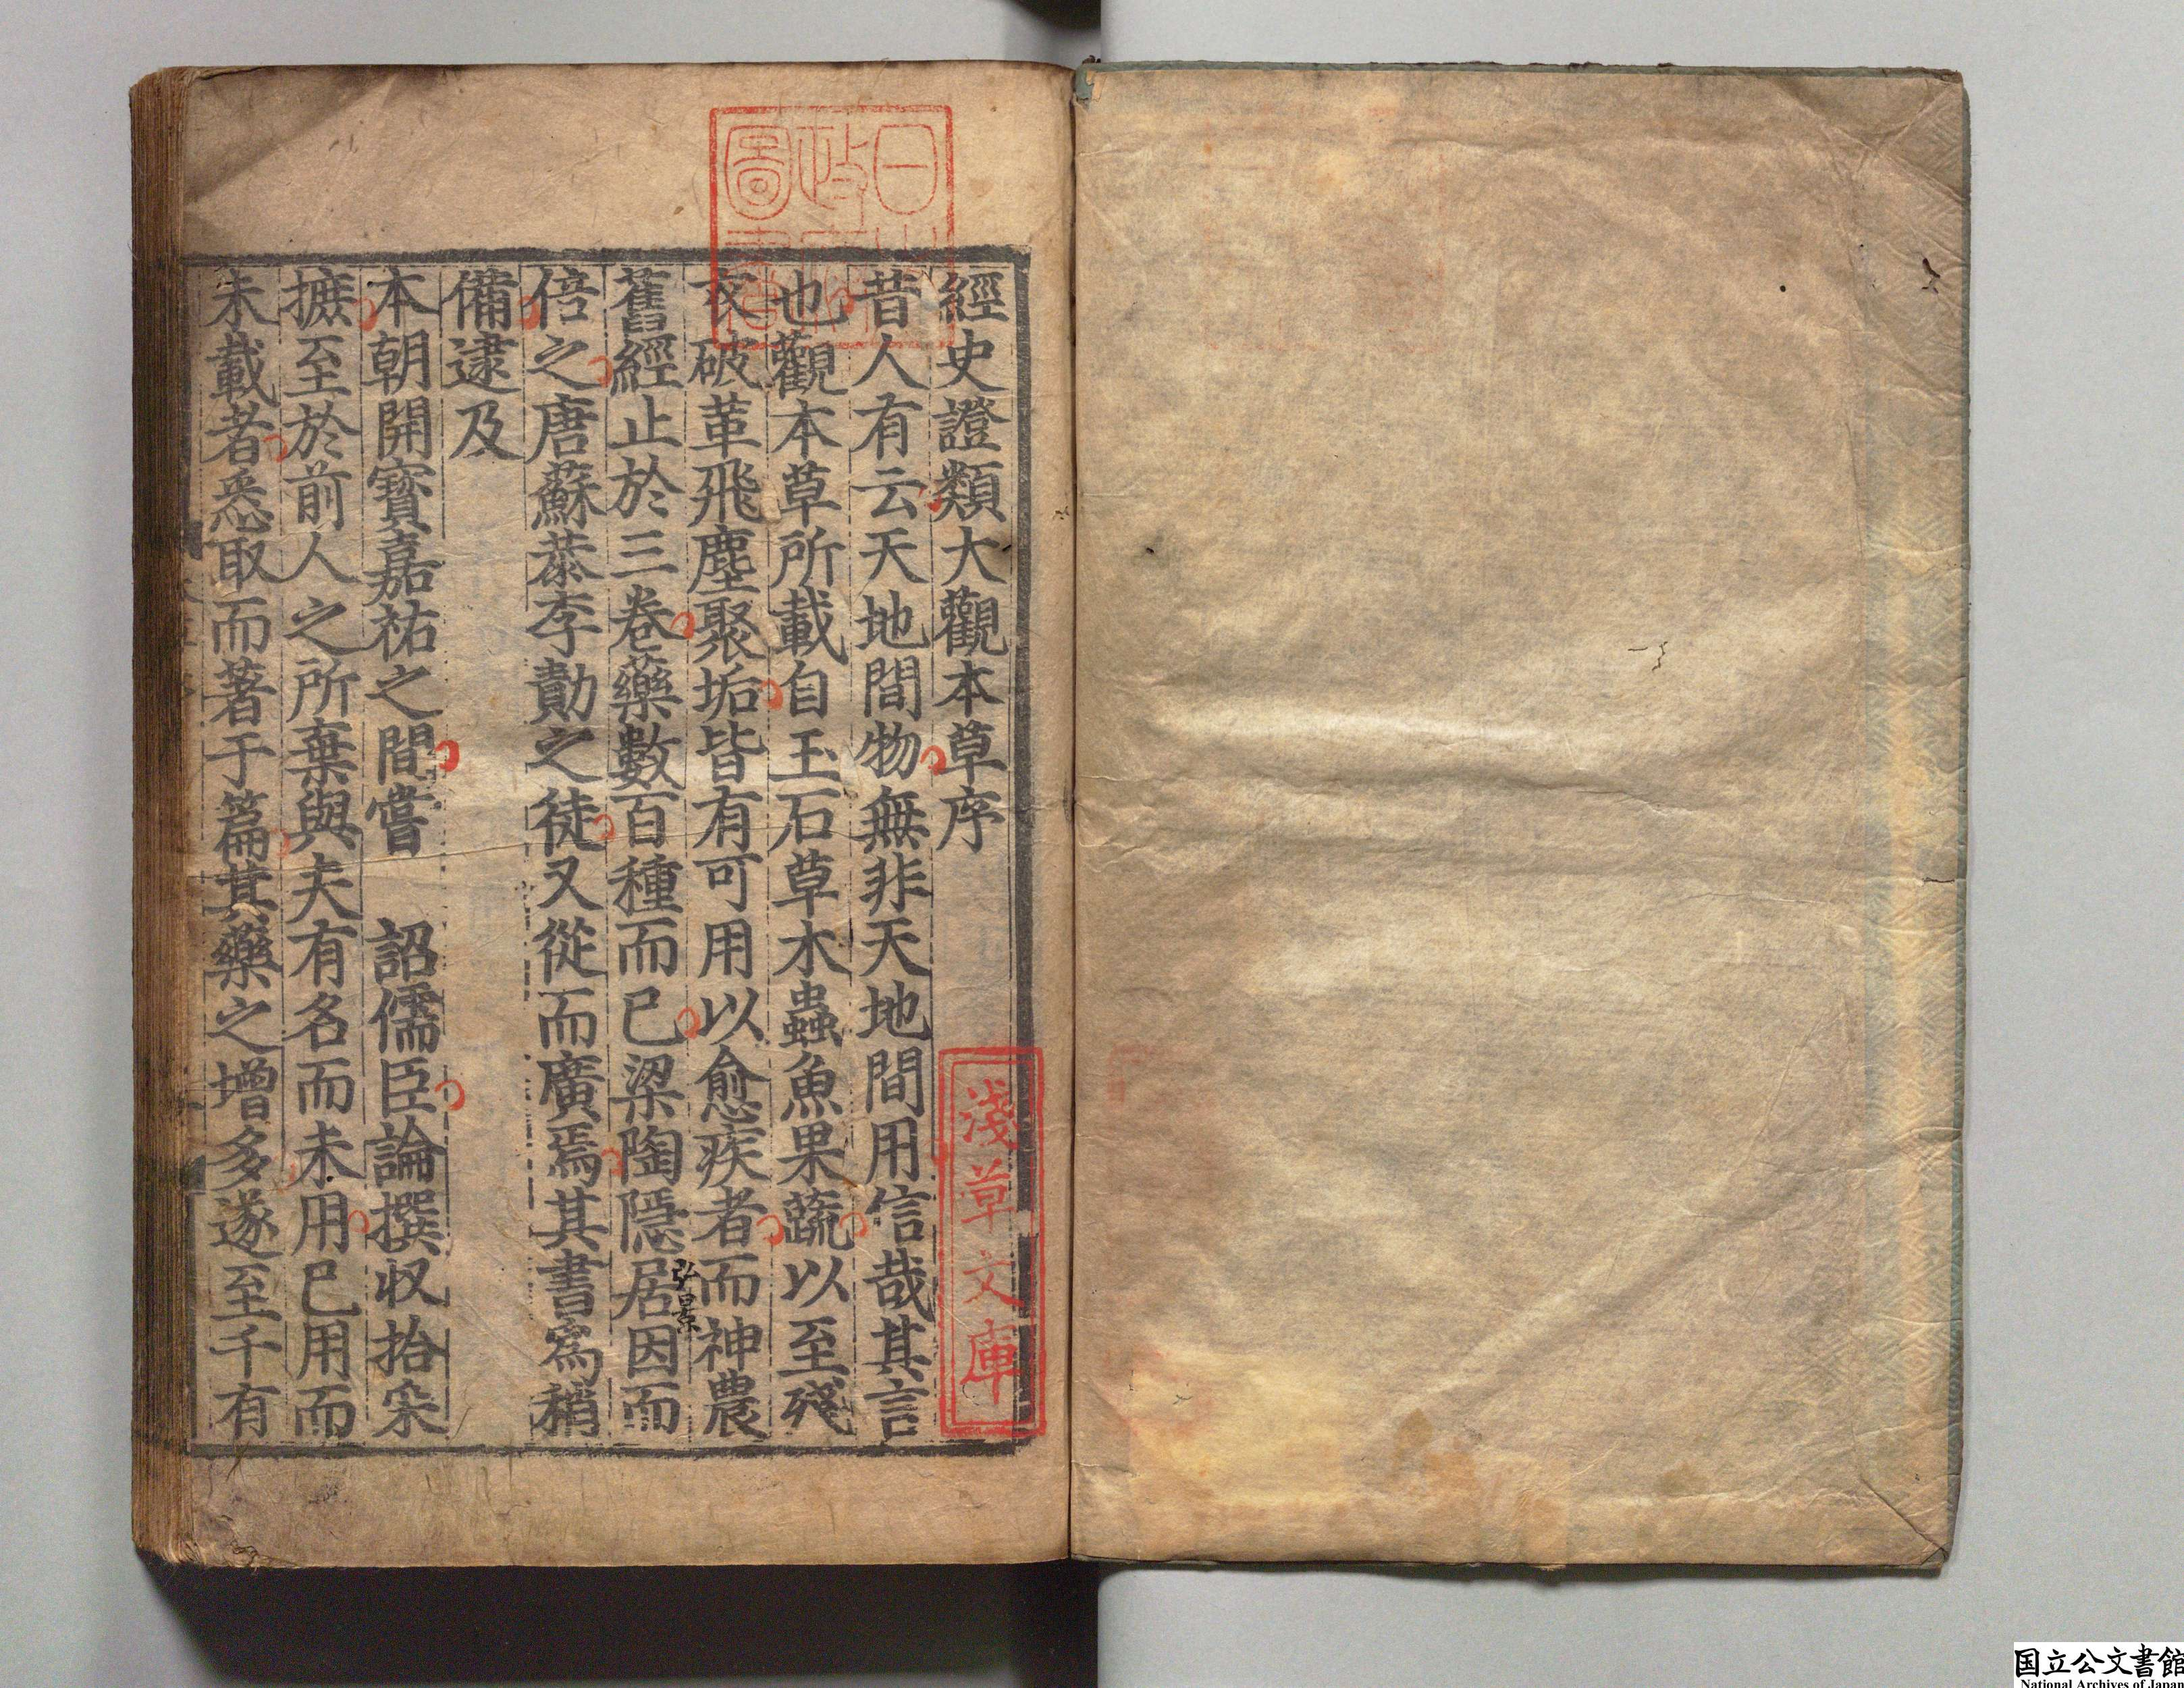 經史證類大觀本草序
昔人有云天地間物無非天地間用信哉其言
也觀本草所載自玉石草木蟲魚果蔬以至殘
衣破革飛塵聚垢皆有可用以愈疾者而神農
舊經止於三卷藥數百種而已梁陶隱居因而
弘景
倍之唐蘇恭李勣之徒又從而廣焉其書爲稍
備逮及
本朝開寶嘉祐之間嘗 詔儒臣論撰収拾采
摭至於前人之所棄與夫有名而未用已用而
未載者悉取而著于篇其藥之增多遂至千有
日本政府圖書
淺草文庫
国立公文書館
National Archives of Japan